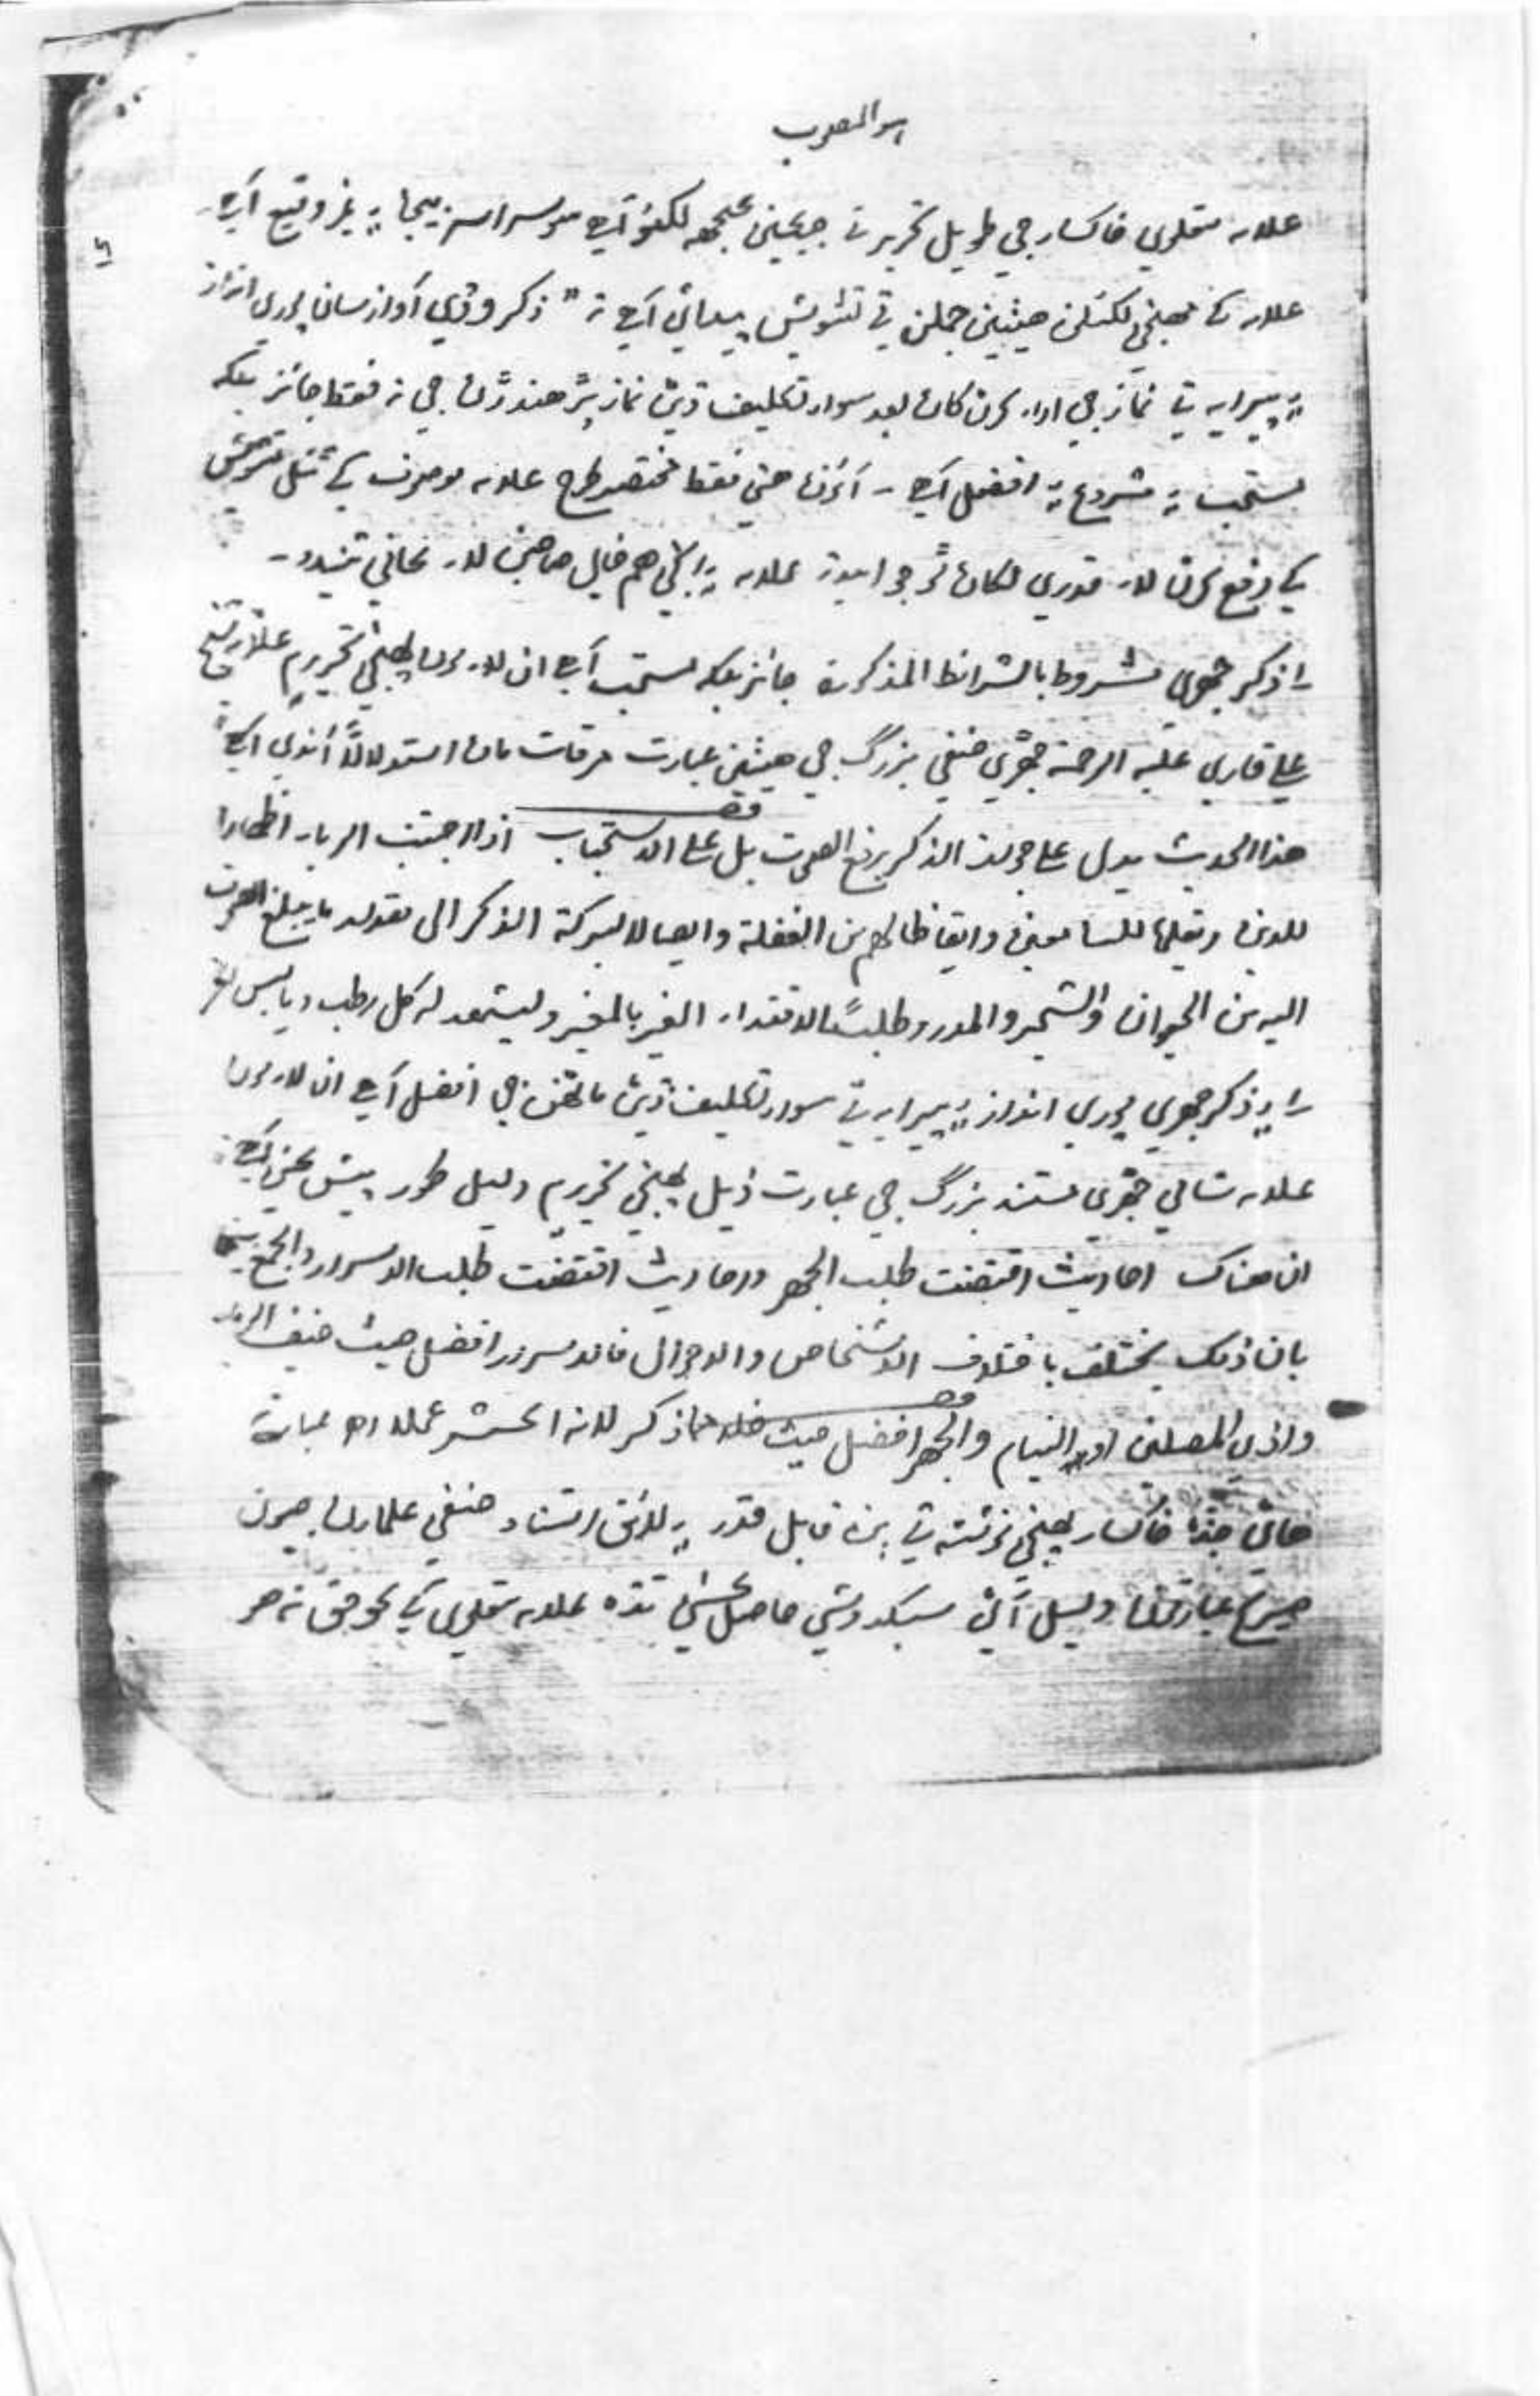 هو المصوب
علامه متعلوي خاڪسار جي طويل تحرير تي جيڪين ڪجهه لکيو آهي سو سراسر بيجا ۽ غير وقيع آهي۔
علامه کي پهنجي لکيل هيٺين جملن تي تشويش پيدا ٿي آهي ته " ذڪر وڏي آواز سان پوري انداز
۽ پيرايه تي نماز جي ادا ڪرڻ کان بعد سواءِ تڪليف ڏيڻ نماز پڙهندڙن جي نه فقط جائز بلڪه
مستحب ۽ مشروع ۽ افضل آهي - آئون هتي فقط مختصر طرح علامه موصوف کي تشويش
کي دفع ڪرڻ لاءِ قدري لکان ٿو جو اميد ته علامه ۽ ٻين هم خيال صاحبن لاءِ ڪافي ٿيندو۔
۱ ذڪر جهري مشروط بالشرائط المذكورة جائز بلڪه مستحب آهي ان لاءِ مون پهنجي تحرير ۾ علامه شيخ
علي قاري عليه الرحمة جهڙي حنفي بزرگ جي هيٺين عبارت مرقات مان استدلالاً آندي آهي
هذا الحديث يدل على جواز الذكر برفع الصوت بل على الاستحباب اذا اجتنب الرياء اظهارا
للدين وتعليما للسامعين وايقاظا لهم من الغفلة وايصالا لبركة الذكر الى مقدار ما يبلغ الصوت
اليه من الحيوان والشجر والمدر وطلبًا لاقتداء الغير بالخير وليشهد له كل رطب ويابس
۲ ذڪر جهري پوري انداز ۽ پيرايه تي سواءِ تڪليف ڏيڻ ماڻهن جي افضل آهي ان لاءِ مون
علامه شامي جهڙي مستند بزرگ جي عبارت ذيل پهنجي تحرير ۾ دليل طور پيش ڪئي آهي
ان هناك احاديث اقتضت طلب الجهر واحاديث اقتضت طلب الاسرار والجمع بينهما
بان ذلك يختلف باختلاف الاشخاص والاحوال فالاسرار افضل حيث خيف الرياء
واذي المصلين او النيام والجهر افضل حيث خلا مما ذكر لانه اكثر عملا اھ عبارته
هاڻي جڏهن خاڪسار پهنجي نوشته تي ٻن قابل قدر ۽ لائق استناد حنفي علمائن جون
صريح عبارتون دليل آڻي سبڪدوشي حاصل ڪئي تڏهن علامه متعلوي کي ڪو حق نه هو